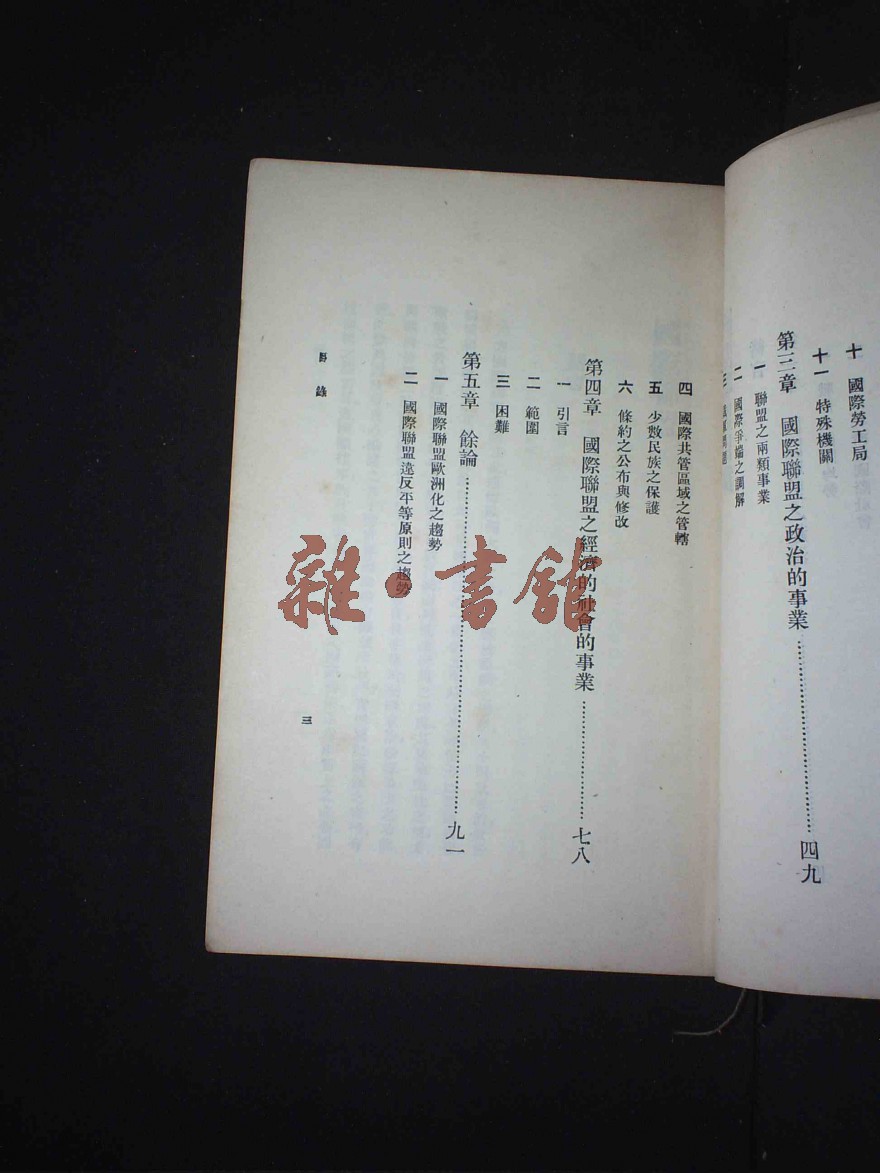 十 國際勞工局
十一 特殊機關
第三章 國際聯盟之政治的事業……四九
一 聯盟之兩類事業
二 國際爭端之調解
三
四 國際共管區域之管轄
五 少數民族之保護
六 條約之公布與修改
第四章 國際聯盟之經濟的社會的事業……七八
一 引言
二 範圍
三 困難
第五章 餘論……九一
一 國際聯盟歐洲化之趨勢
二 國際聯盟違反平等原則之趨勢
目錄
三
雜·書館